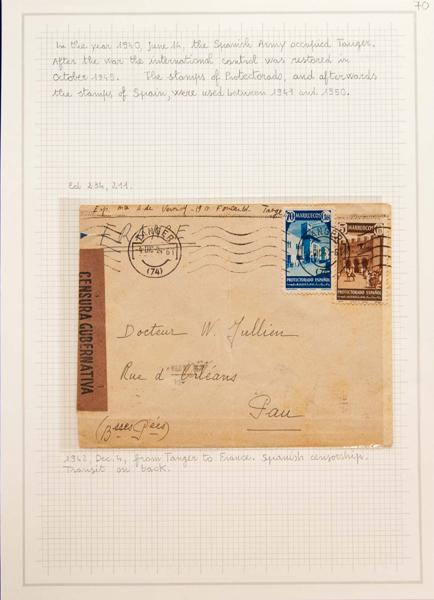 70
In the year 1940, June 14, the Spanish Army occupied Tanger.
After the war the international control was restored in
October 1945. The stamps of Protectorado, and afterwards
the stamps of Spain, were used between 1941 and 1950.
Ed 234, 211.
Tanger
TANGER
(74)
70
MARRUECOS
PROTECTORADO ESPAÑOL
MARRUECOS
PROTECTORADO ESPAÑOL
CENSURA GUBERNATIVA
Docteur W. Jullien
Rue d'Orléans
Pau
(Bsses Pées)
1942, Dec. 4, from Tanger to France. Spanish censorship.
Transit on back.